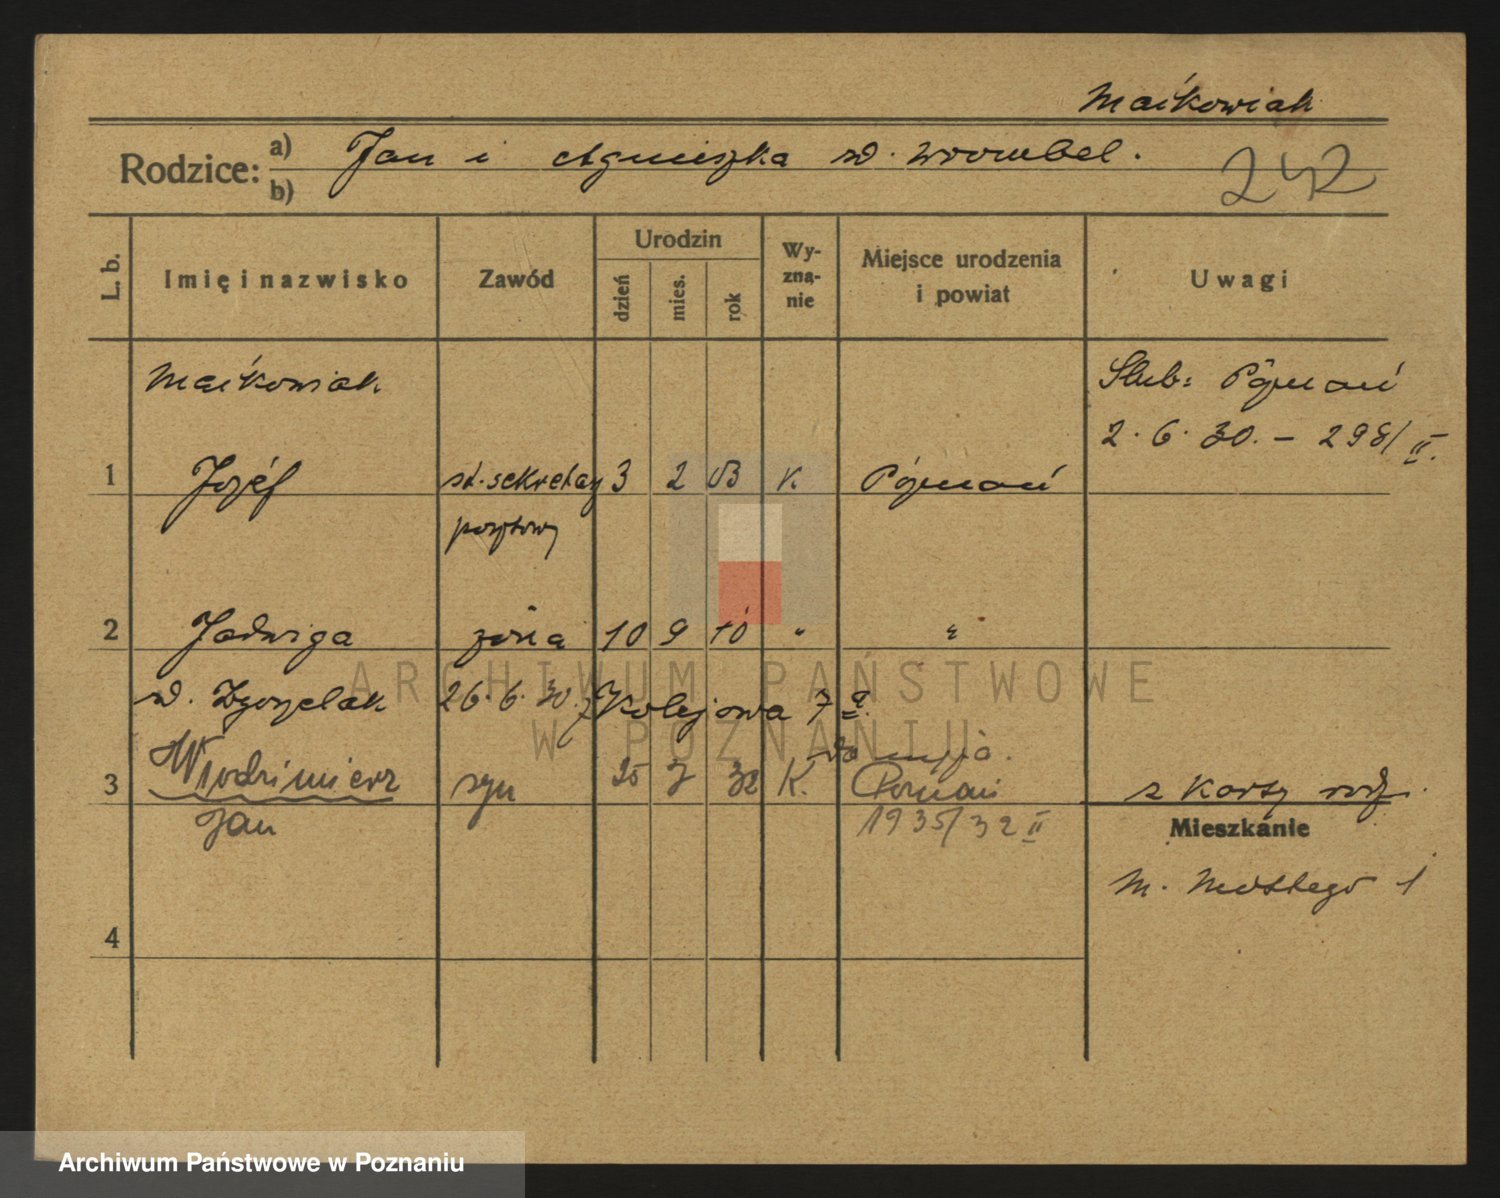 Maćkowiak
Rodzice: a) Jan i Agnieszka zd. Wrombel.
b)
242
L. b.
Imię i nazwisko
Zawód
Urodzin
dzień
mies.
rok
Wy-
zna-
nie
Miejsce urodzenia
i powiat
Uwagi
Maćkowiak
Ślub: Poznań
2. 6. 30. – 298/II.
1 Józef st. sekretarz 3 2 03 k. Poznań
pocztowy
2 Jadwiga żona 10 9 10 " "
zd. Zgorzelak 26. 6. 30. z Kolejowa 7a
3 Włodzimierz syn 25 7 32 K. Poznań
z karty rodz.
Jan 1935/32 II
Mieszkanie
M. Mottego 1
4
ARCHIWUM PAŃSTWOWE
W POZNANIU
Archiwum Państwowe w Poznaniu